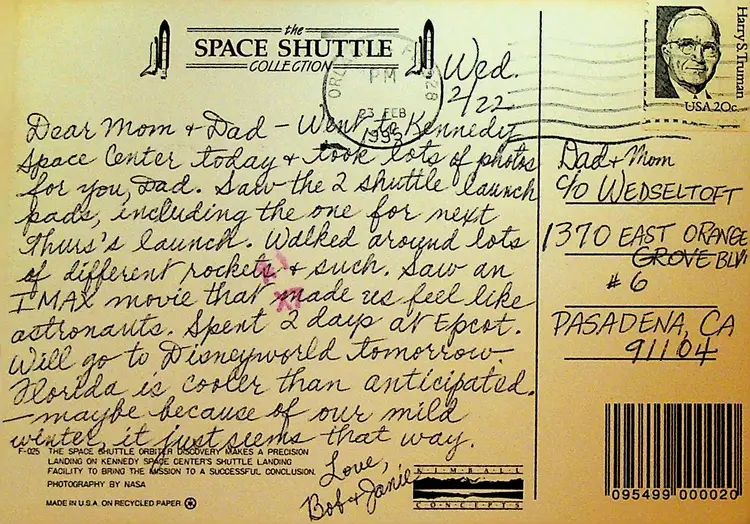 the
SPACE SHUTTLE
COLLECTION
PM
23 FEB
Wed.
2/22
Harry S. Truman
USA 20c
Dear Mom & Dad - Went to Kennedy
Space Center today & took lots of photos
for you, Dad. Saw the 2 shuttle launch
pads, including the one for next
Thurs's launch. Walked around lots
of different rockets & such. Saw an
IMAX movie that made us feel like
astronauts. Spent 2 days at Epcot.
Will go to Disneyworld tomorrow-
Florida is cooler than anticipated.
-maybe because of our mild
winter, it just seems that way.
Love,
Bob & Janie
Dad & Mom
c/o WEDSELTOFT
1370 EAST ORANGE
GROVE BLVD
#6
PASADENA, CA
91104
F-025 THE SPACE SHUTTLE ORBITER DISCOVERY MAKES A PRECISION
LANDING ON KENNEDY SPACE CENTER'S SHUTTLE LANDING
FACILITY TO BRING THE MISSION TO A SUCCESSFUL CONCLUSION.
PHOTOGRAPHY BY NASA
MADE IN U.S.A. ON RECYCLED PAPER
KIMBALL
CONCEPTS
095499 000020